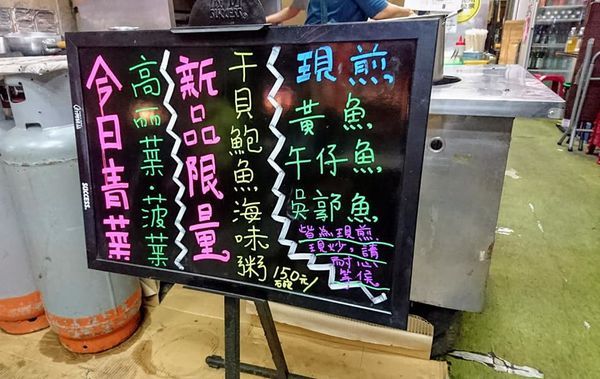 今日青菜
高丽菜·菠菜
新品限量
干貝鮑魚海味粥
150元/
現煎
黃魚
午仔魚
吳郭魚
皆為現煎
現炒，請
耐心
等候
SUCCESS